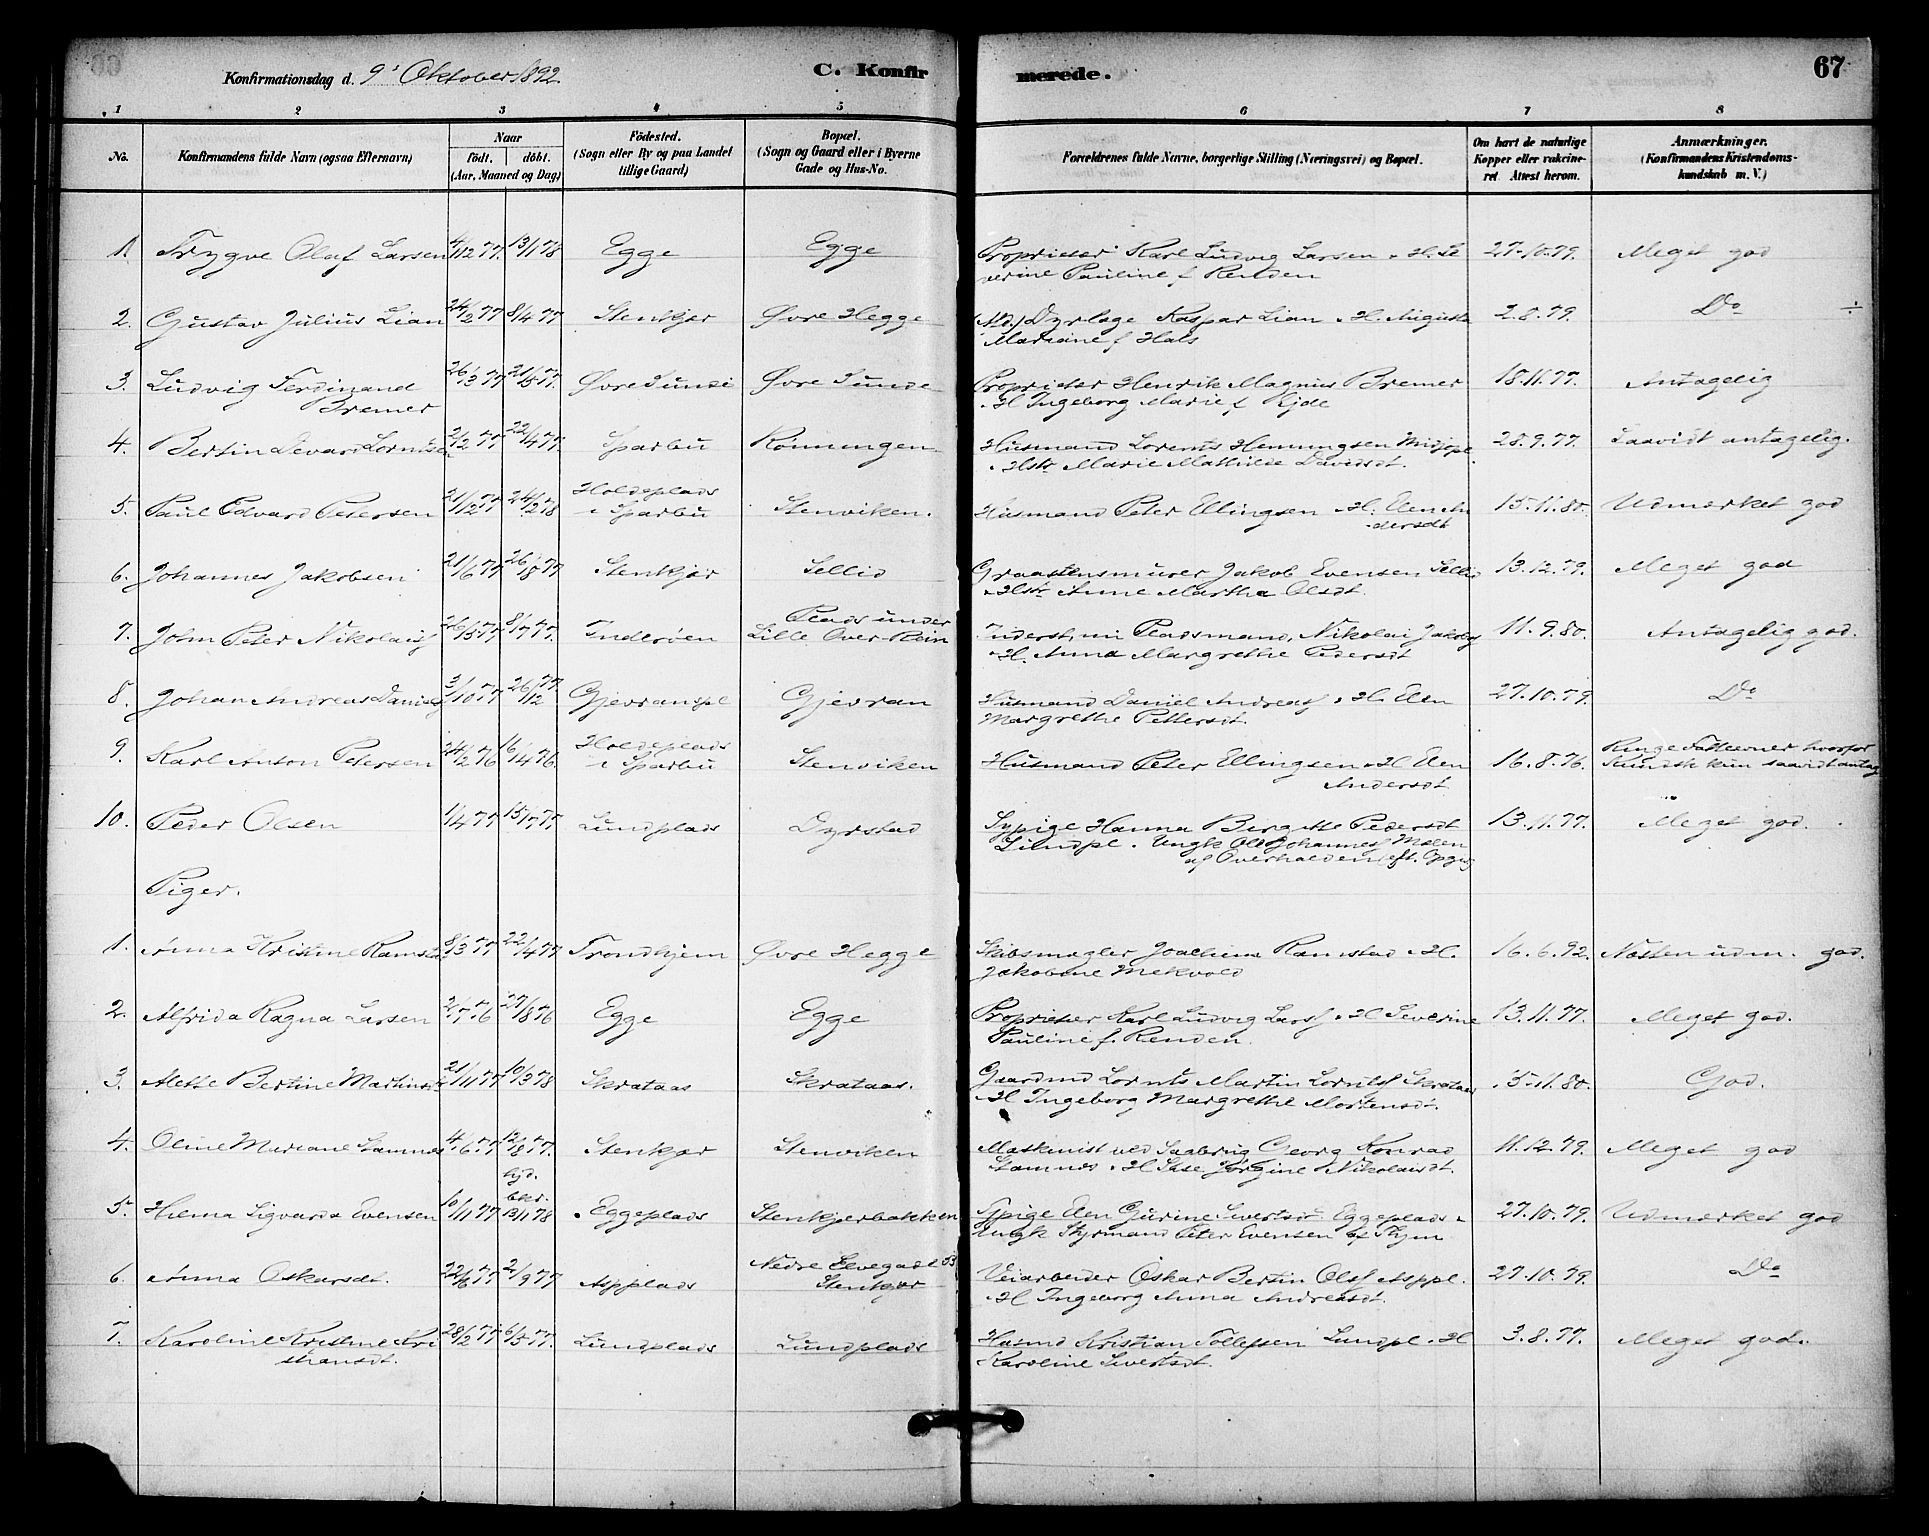 Konfirmationsdag d. 9' Oktober 1892.
C. Konfir
merede.
67
1 2 3 4 5 6 7 8
No.
Konfirmandens fulde Navn (ogsaa Efternavn)
Naar
födt. döbt.
(Aar, Maaned og Dag)
Födested.
(Sogn eller By og paa Landet
tillige Gaard)
Bopæl.
(Sogn og Gaard eller i Byerne
Gade og Hus-No.
Forældrenes fulde Navne, borgerlige Stilling (Næringsvei) og Bopæl.
Om havt de naturlige
Kopper eller vakcine-
ret Attest herom.
Anmærkninger.
(Konfirmandens Kristendoms-
kundskab m. V.)
1. Trygve Olaf Larsen 4/12 77. 13/1 78 Egge Egge Proprietær Karl Ludvig Larsen & H. Se 27.10.79. Meget god
verine Pauline f. Renden
2. Gustav Julius Lian 24/2 77 8/4 77 Stenkjær Øvre Hegge Dyrlæge Kaspar Lian & H. Augusta 2.8.79. Do ÷
Mariane f Hals
3. Ludvig Ferdinand 26/3 77 21/5 77. Øvre Sunde Proprietær Henrik Magnus Bremer 18.11.77. Antagelig
Bremer & H Ingeborg Marie f.
4. Bertin Levard Lorntsen 2/2 77 22/4 77. Sparbu Rønningen Husmand Lorents Hemmingsen 28.9.77. Saavidt antagelig.
& Hstr Marie Mathilde Davidsdt.
5. Paul Edvard Petersen 21/12 77 24/2 78 Holdeplads
i Sparbu Stenviken. Husmand Peter Ellingsen & H. Elen An 15.11.80. Udmærket god
dersdt
6. Johannes Jakobsen 21/6 77 26/8 77 Stenkjær Sellid Graastensmurer Jakob Evensen Sellid 13.12.79. Meget god
& Hstr Anne Martha Olsdt.
7. John Peter Nikolais 26/5 77 8/7 77. Inderøen Plads under
Lille Over-Rein Inderst, nu Pladsmand, Nikolai Jakobs 11.9.80. Antagelig god.
& H. Anna Margrethe Pedersdt
8. Johan Andreas Daniels 3/10 77 26/12 77. Gjevranspl Gjevran Husmand Daniel Andreas & H. Elen 27.10.79. Do
Margrethe Pettersdt.
9. Karl Anton Petersen 24/2 76 16/4 76. Holdeplads
i Sparbu Stenviken Husmand Peter Ellingsen & H Elen 16.8.76. Ringe Fatteevner hvorfor
Andersdt Kundsk kun saavidt antag
10. Peder Olsen 1/4 77 15/7 77. Lundplads Dyrstad Sypige Hanna Birgitte Pedersdt 13.11.77. Meget god.
Lundpl. Ungk Ole Johannes Moen
af Overhalden eft. Opgiv
Piger.
1. Anna Kristine Ramstad 8/3 77 22/4 77 Trondhjem Øvre Hegge Skibsmægler Joachim Ramstad & H. 16.6.92. Næsten udm. god.
Jakobine Mekvold
2. Alfrida Ragna Larsen 2/7 76 27/8 76 Egge Egge Proprietær Karl Ludvig Lars & H Severine 13.11.77. Meget god.
Pauline f. Renden.
3. Alette Bertine Martinsdt 21/11 77 10/3 78 Skrataas Skrataas. Gaardmd Lornts Martin Lornts Skrataas 15.11.80. God.
& H Ingeborg Margrethe Mortensdt.
4. Oline Mariane Stamnes 4/6 77 12/8 77. Stenkjær Stenviken Maskinist ved Saabrug Georg Konrad 11.12.79. Meget god
Stamnes & H Jørgine Nikolaisdt.
5. Hilma Sigvarda Evensen 10/11 77 hjd.
bekr.
13/1 78 Eggeplads Stenkjerbakken Spige Elen Gurine Sivertsdt Eggeplads & 27.10.79. Udmærket god
Ungk Styrmand Peter Evensen af Thjem
6. Anna Oskarsdt. 22/6 77 2/9 77 Aspplads Nedre Elvegade 53
Stenkjær Veiarbeider Oskar Bertin Ols Asppl. 27.10.79. Do
& H Ingeborg Anna Andreasdt.
7. Karoline Kristine Kri 28/2 77 6/5 77. Lundplads Lundplads Husmd Kristian Tollefsen Lundpl. & H 3.8.77. Meget god.
stiansdt. Karoline Sivertsdt.